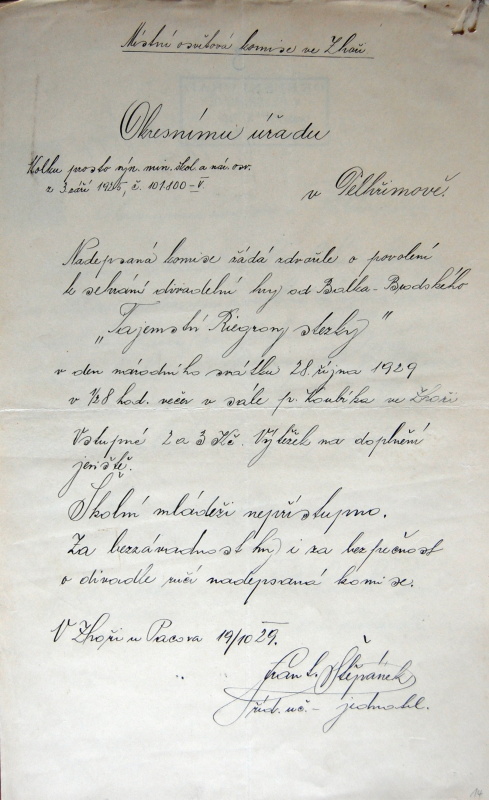 Místní osvětová komise ve Zhoři.
Okresnímu úřadu
Kolku prosto výn. min. škol. a nár. osv.
z 3. září 1925, č. 101.100-V.
v Pelhřimově.
Nadepsaná komise žádá zdvořile o povolení
k sehrání divadelní hry od Balka-Brodského
„Tajemství Riegrovy stezky"
v den národního svátku 28. října 1929
v 1/28 hod. večer v sále p. Koubíka ve Zhoři
Vstupné 2 a 3 Kč. Výtěžek na doplnění
jeviště.
Školní mládeži nepřístupno.
Za bezzávadnost hry i za bezpečnost
v divadle ručí nadepsaná komise.
V Zhoři u Pacova 19/10 29.
Frant. Štěpánek
říd. uč. - jednatel.
14